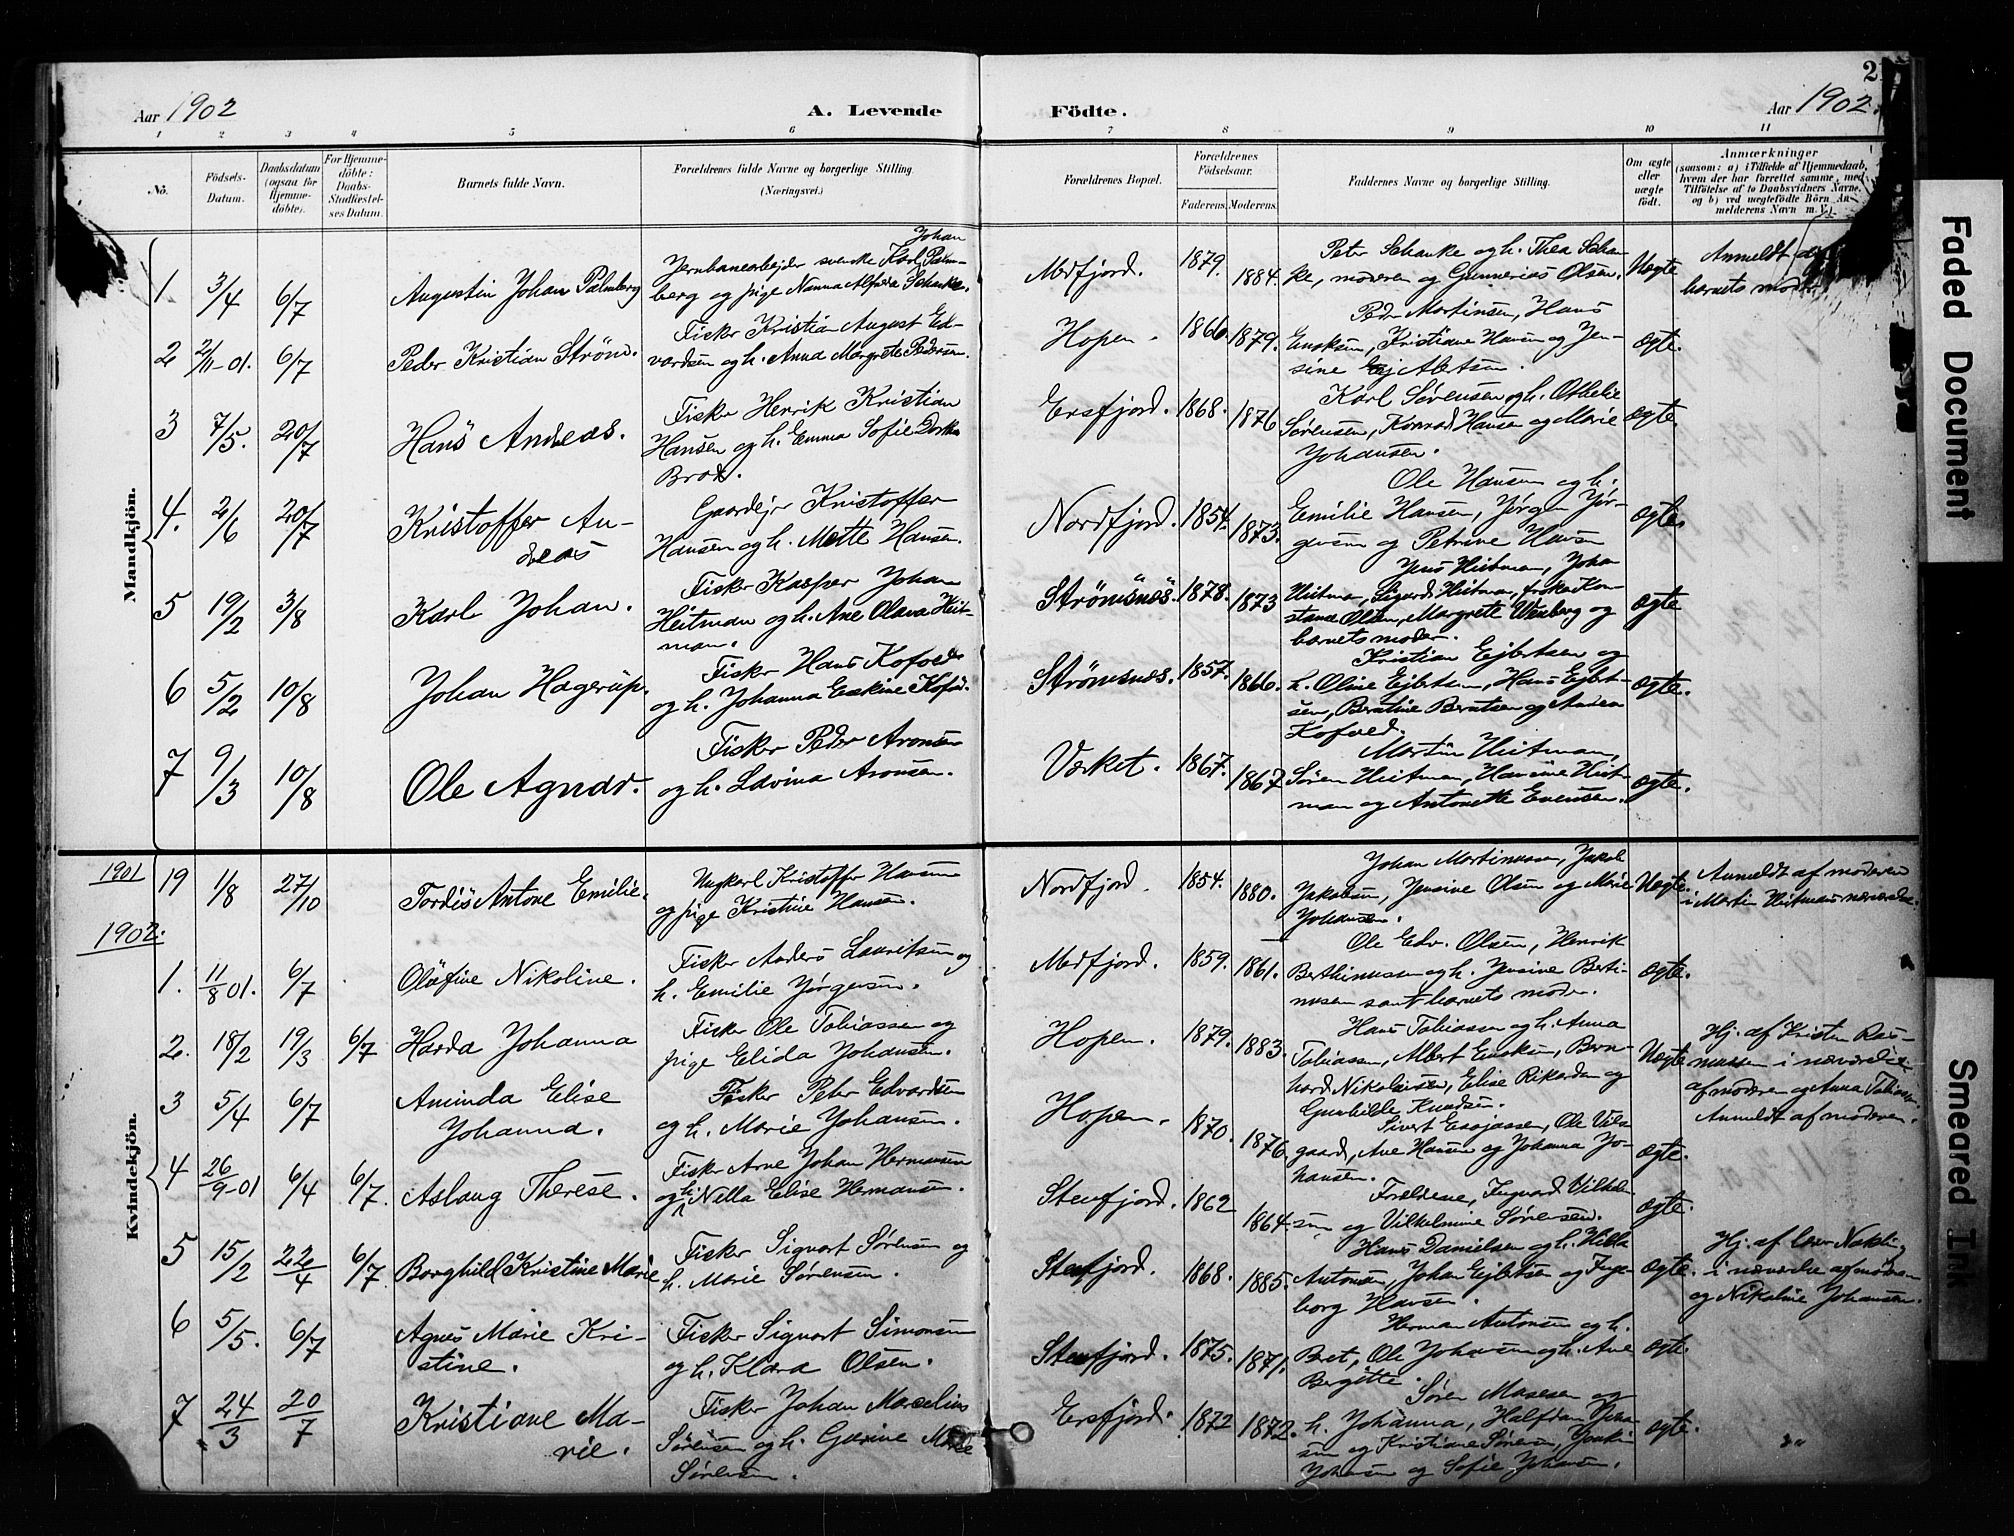 Aar 1902 A. Levende Födte. Aar 1902. 2
1 2 3 4 5 6 7 8 9 10 11
No. Födsels-Datum. Daabsdatum (ogsaa for Hjemmedöbte). For Hjemmedöbte: Daabs-Stadfæstelses Datum. Barnets fulde Navn. Forældrenes fulde Navne og borgerlige Stilling. (Næringsvei.) Forældrenes Bopæl. Forældrenes Födselsaar. Faderens. Moderens. Faddernes Navne og borgerlige Stilling. Om ægte eller uægte födt. Anmærkninger (saasom: a) i Tilfælde af Hjemmedaab, hvem der har forrettet samme, med Tilföielse af to Daabsvidners Navne, og b) ved uægtefödte Börn Anmelderens Navn m. V.)
Mandkjön.
1 3/4 6/7 Augustin Johan Palmberg
Jernbanearbejder svenske Karl Johan Palm-
berg og pige Nanna Alfida Schanke.
Medfjord. 1879. 1884.
Peter Schanke og h. Thea Schan-
ke, moderen og Gunnerius Olsen.
Uægte Anmeldt
barnets moder
2 2/11-01. 6/7 Peder Kristian Strøm.
Fisker Kristian August Ed-
vardsen og h. Anna Margrete Pedersen.
Hopen. 1866. 1879.
Peder Martinsen, Hans
Enoksen, Kristiane Hansen og Jen-
sine
ægte.
3 7/5. 20/7 Hans Andreas.
Fisker Henrik Kristian
Hansen og h. Emma Sofie Dorthea
Brox.
Ersfjord. 1868. 1876
Karl Sørensen og h. Othelie
Sørensen, Konrad Hansen og Marie
Johansen.
ægte.
4. 2/6 20/7 Kristoffer An-
dreas
Gaardejer Kristoffer
Hansen og h. Mette Hansen.
Nordfjord. 1854. 1873.
Ole Hansen og h.
Emilie Hansen, Jørgen Jør-
gensen og Petrine Hansen
ægte.
5 19/2 3/8 Karl Johan.
Fisker Kasper Johan
Heitman og h. Ane Olava Heit-
man.
Strömsnes. 1878. 1873
Jens Heitman, Johan
Heitman, Sigurd Heitman, frøken Kon-
stance Olsen, Margrete Wenberg og
barnets moder.
ægte
6 5/2 10/8 Johan Hagerup.
Fisker Hans Kofoed
og h. Johanna Erekine Kofod.
Strömsnes. 1857. 1866.
Kristian Ejbertsen og
h. Oline Ejbertsen, Hans Ejbert-
sen, Berntine Berntsen og Andrea
Kofoed.
ægte.
7 9/3 10/8 Ole Agnar.
Fisker Peder Aronsen
og h. Lavina Aronsen.
Værket. 1867. 1867
Martin Heitman,
Søren Heitman, Hansine Heit-
man og Antonette Evensen.
ægte.
Kvindekjön.
1901
19 1/8 27/10 Tordis Antone Emilie.
Ungkarl Kristoffer Hansen
og pige Kristine Hansen.
Nordfjord. 1854. 1880.
Johan Martinussen, Jakob
Jakobsen, Jensine Olsen og Marie
Johansen.
Uægte. Anmeldt af moderen
i Martin Heitmans nærværelse.
1902.
1. 11/8 01. 6/7 Oløfine Nikoline.
Fisker Anders Lauritsen og
h. Emilie Jørgensen.
Medfjord. 1859. 1861.
Ole Edv. Olsen, Henrik
Berthinussen og h. Jensine Berti-
nusen samt barnets moder.
ægte.
2. 18/2 19/3 6/7 Harda Johanna
Fisker Ole Tobiassen og
pige Elida Johansen.
Hopen. 1879. 1883.
Hans Tobiassen og h. Anna
Tobiassen, Albert Enoksen, Bern-
hard Nikolaisen, Elise Rikardsen og
Gunhilde Knudsen.
Uægte Hj. af Kristen Ras-
mussen i nærværelse
af moderen og Anna Tobiassen.
Anmeldt af moderen.
3 5/4 6/7 Aminda Elise
Johanna.
Fisker Peter Edvardsen
og h. Marie Johansen.
Hopen. 1870. 1876.
Sivert Esajassen, Ole Vils-
gaard, Ane Hansen og Johanna Jo-
hansen.
ægte.
4 26/9-01 6/4 6/7 Aslaug Therese.
Fisker Arne Johan Hermansen
og h. Nella Elise Hermansen.
Stenfjord. 1862 1864.
Forældrene, Ingvard Vilhelm-
sen og Vilhelmine Sørensen.
ægte.
5 15/2 22/4 6/7 Borghild Kristine Marie
Fisker Sigvart Sørensen og
h. Marie Sørensen.
Stenfjord. 1868. 1885.
Hans Danielsen og h. Hilda
Antonsen, Johan Ejbertsen og Inge-
borg Hansen.
ægte. Hj. af
i nærværelse af moderen
og Nikoline Johansen.
6 5/5. 6/7 Agnes Marie Kri-
stine.
Fisker Sigvart Simonsen
og h. Klara Olsen.
Stenfjord. 1875. 1871.
Herman Antonsen og h.
Beret, Ole Johansen og h. Ane
Bergitte.
ægte.
7 24/3 20/7 Kristiane Ma-
rie.
Fisker Johan Marselius
Sørensen og h. Gurine Marie
Sørensen.
Ersfjord. 1872 1872.
Søren Mosesen og
h. Johanna, Halfdan
sen og Kristiane Sørensen,
Johansen og Sofie Johansen.
ægte.
Faded Document
Smeared Ink